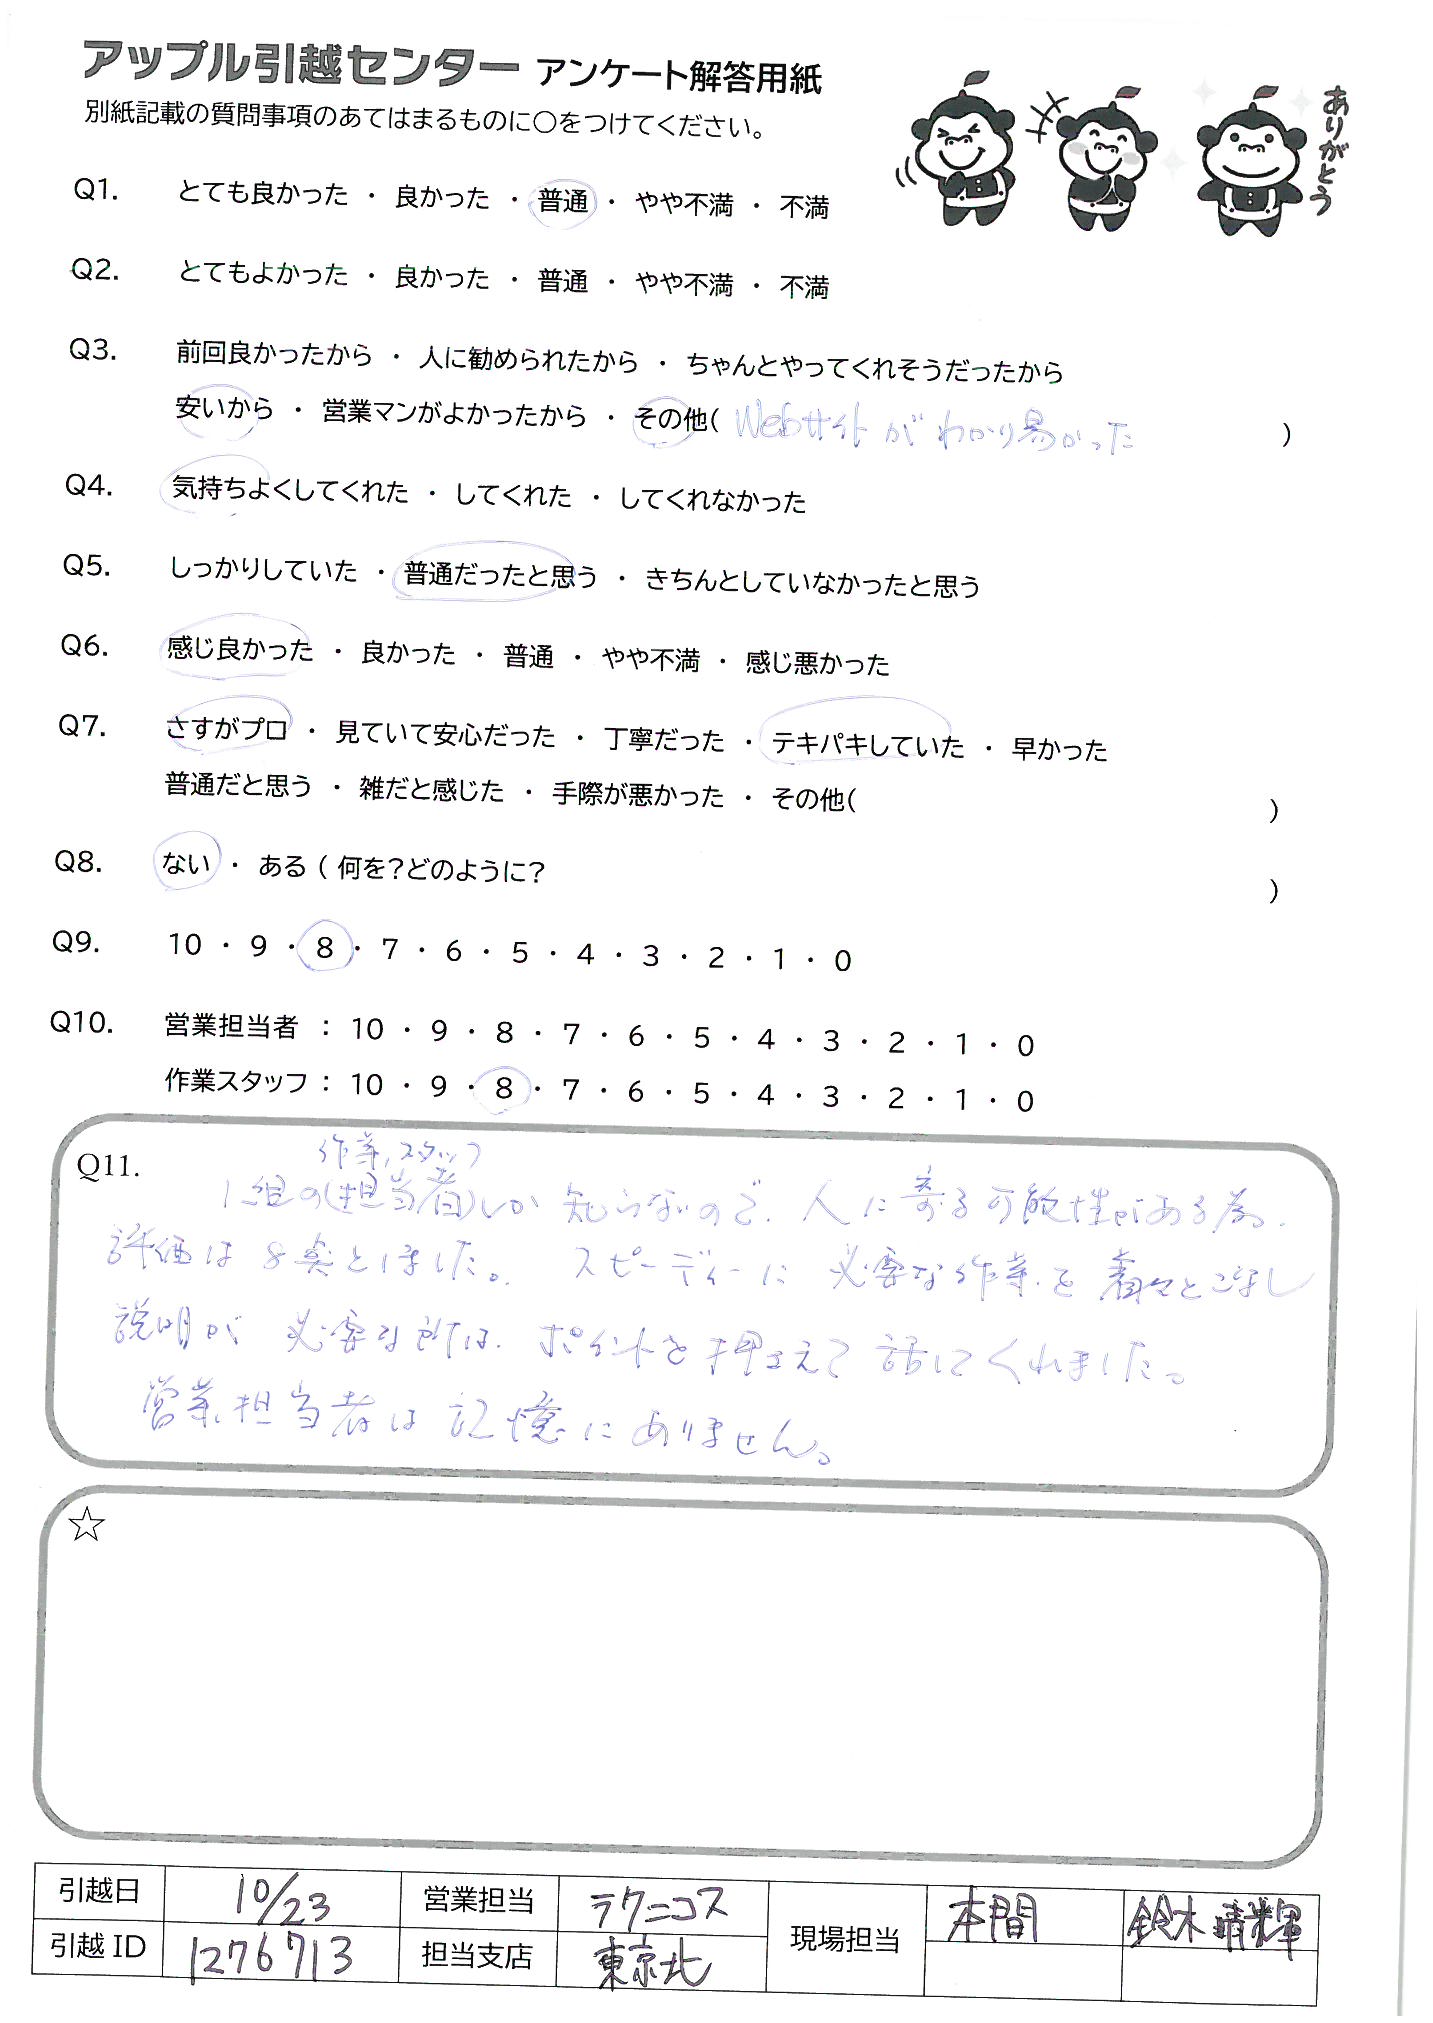 アップル引越センター アンケート解答用紙
別紙記載の質問事項のあてはまるものに○をつけてください。
ありがとう
Q1. とても良かった ・ 良かった ・ 普通 ・ やや不満 ・ 不満
Q2. とてもよかった ・ 良かった ・ 普通 ・ やや不満 ・ 不満
Q3. 前回良かったから ・ 人に勧められたから ・ ちゃんとやってくれそうだったから
安いから ・ 営業マンがよかったから ・ その他( Webサイトがわかり易かった )
Q4. 気持ちよくしてくれた ・ してくれた ・ してくれなかった
Q5. しっかりしていた ・ 普通だったと思う ・ きちんとしていなかったと思う
Q6. 感じ良かった ・ 良かった ・ 普通 ・ やや不満 ・ 感じ悪かった
Q7. さすがプロ ・ 見ていて安心だった ・ 丁寧だった ・ テキパキしていた ・ 早かった
普通だと思う ・ 雑だと感じた ・ 手際が悪かった ・ その他( )
Q8. ない ・ ある ( 何を?どのように? )
Q9. 10 ・ 9 ・ 8 ・ 7 ・ 6 ・ 5 ・ 4 ・ 3 ・ 2 ・ 1 ・ 0
Q10. 営業担当者 : 10 ・ 9 ・ 8 ・ 7 ・ 6 ・ 5 ・ 4 ・ 3 ・ 2 ・ 1 ・ 0
作業スタッフ : 10 ・ 9 ・ 8 ・ 7 ・ 6 ・ 5 ・ 4 ・ 3 ・ 2 ・ 1 ・ 0
Q11.
作業スタッフ
1組の(担当者)しか知らないので、人に寄る可能性がある為、
評価は8点としました。 スピーディーに必要な作業を着々とこなし
説明が必要な所は、ポイントを押さえて話してくれました。
営業担当者は記憶にありません。
☆
引越日 10/23 営業担当 テクニコス 現場担当 本間 鈴木晴輝
引越ID 1276713 担当支店 東京北